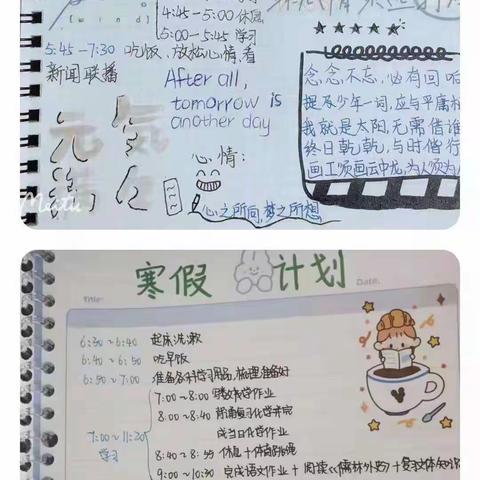 [wind]
4:45-5:00 休息
5:00-5:45 学习
5:45-7:30 吃饭、放松心情,看
新闻联播
After all,
tomorrow is
another day
元气
心情:
心之所向,梦之所想
念念不忘,必有回响
提及少年一词,应与平庸相
我就是太阳,无需借谁
终日乾乾,与时偕行
画工须画云中龙,为人须为人
Meitu
寒假计划
Title:
Date:
6:30~6:40 起床洗漱
6:40~6:50 吃早饭
6:50~7:00 准备各科学习用品,梳理准备好
7:00~11:20
学习
7:00~8:00 数学作业
8:00~8:40 化学
当日化学作业
8:40~8:55 休息+体育跳绳
9:00~10:30 完成语文作业+阅读《儒林外史》+复习文体知识